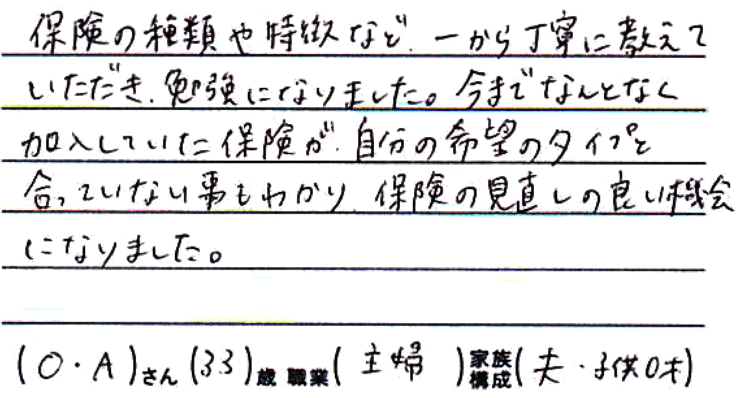 保険の種類や特徴など、一から丁寧に教えて
いただき、勉強になりました。今までなんとなく
加入していた保険が、自分の希望のタイプと
合っていない事もわかり、保険の見直しの良い機会
になりました。
(O・A)さん(33)歳 職業(主婦)家族構成(夫・子供0才)